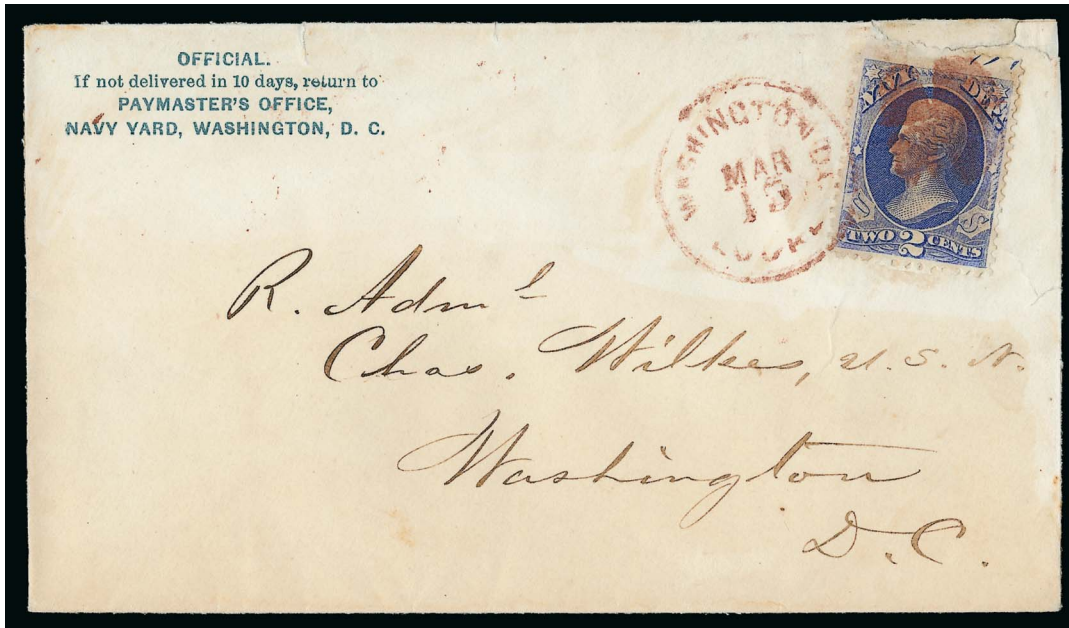 OFFICIAL.
If not delivered in 10 days, return to
PAYMASTER'S OFFICE,
NAVY YARD, WASHINGTON, D. C.
WASHINGTON D.C.
MAR
15
NAVY DEPT.
U S
TWO 2 CENTS
R. Adml
Chas. Wilkes, U. S. N.
Washington
D. C.